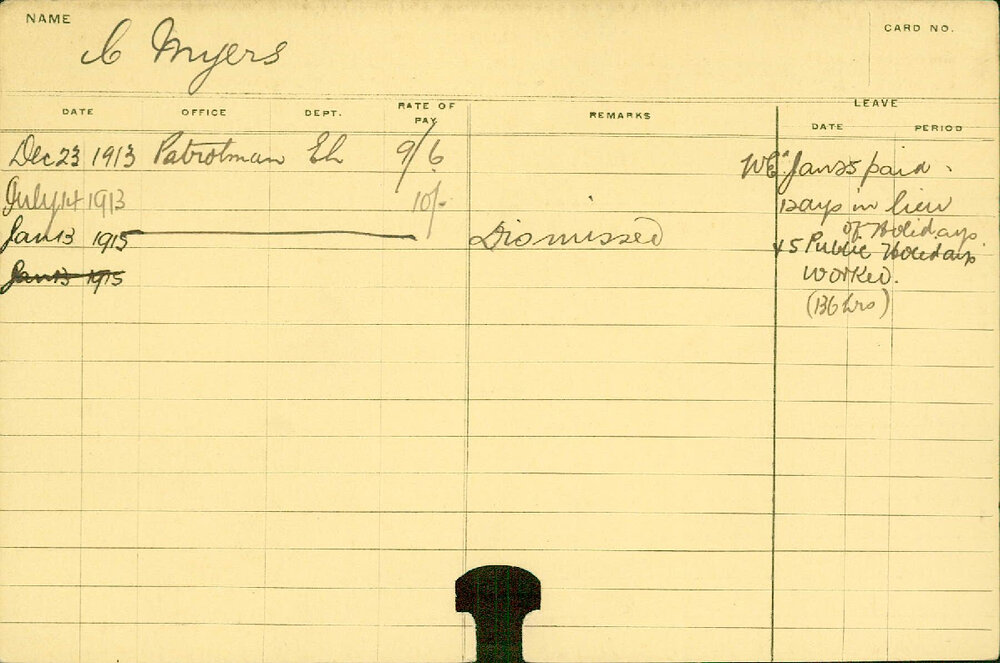 NAME
C Myers
CARD NO.
DATE OFFICE DEPT. RATE OF PAY REMARKS LEAVE
DATE PERIOD
Dec 23 1913 Patrolman Eh 9/6 WE Jan 25 paid.
July 14 1913 10/- Days in lieu of Holidays
Jan 13 1915 Dismissed + 5 Public Holidays
Jan 13 1915 worked.
(136 hrs)